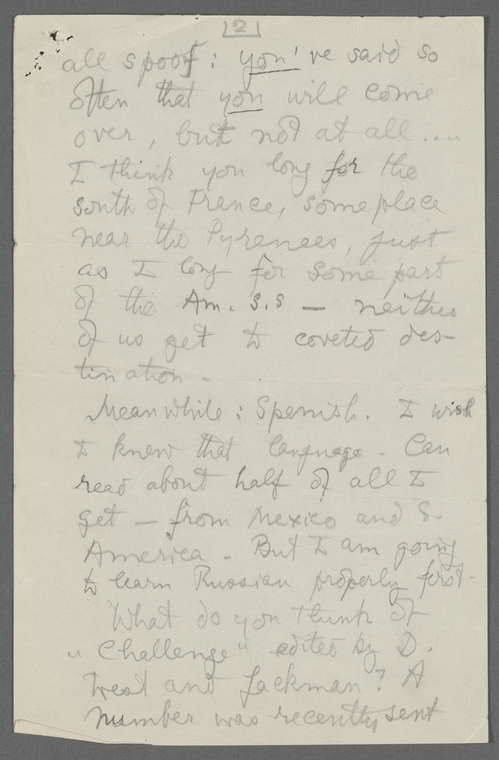 2
all spoof: you've said so
often that you will come
over, but not at all....
I think you long for the
south of France, someplace
near the Pyrenees, just
as I long for some part
of the Am. S.S — neither
of us get to coveted des-
tination.
Meanwhile: Spenish. I wish
I knew that language. Can
read about half of all I
get — from Mexico and S.
America. But I am going
to learn Russian properly first.
What do you think of
"Challenge" edited by D.
West and Jackman? A
number was recently sent